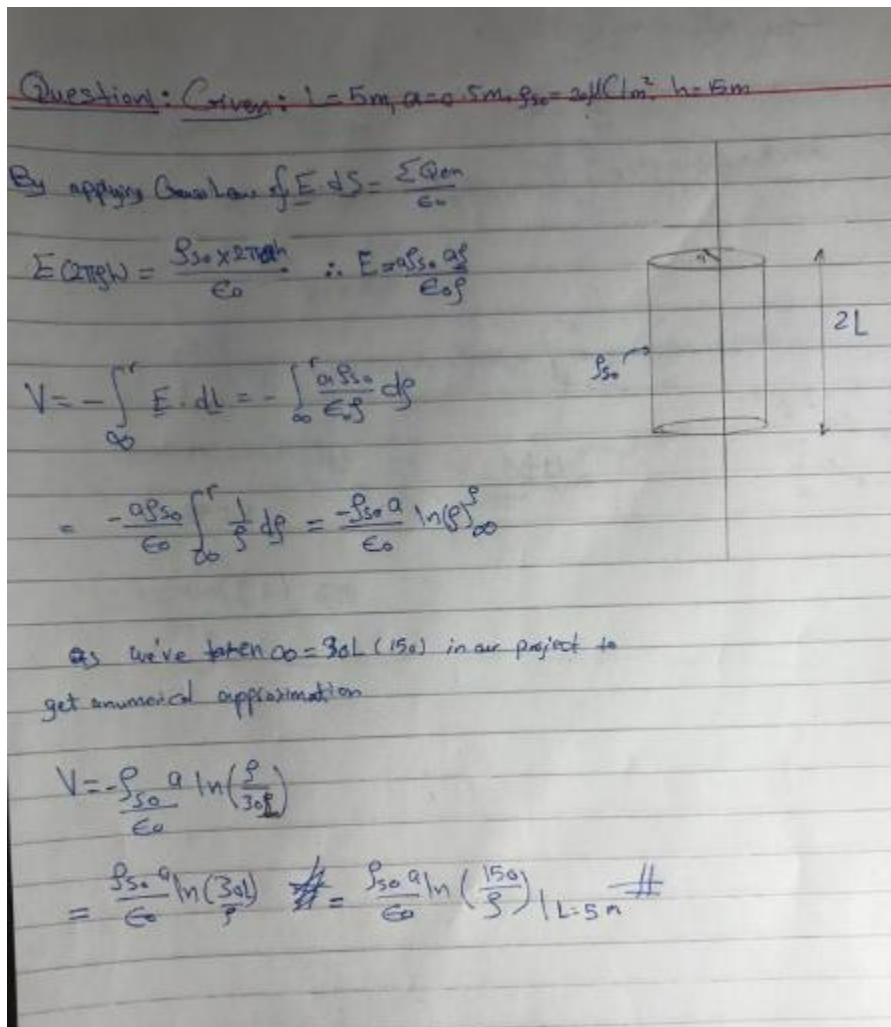 Question: Given: L=5m, a=0.5m, ρso=20μC/m² h=15m
By applying Gauss Law ∮E dS = ΣQen/ϵo
E(2πρh) = ρso x 2πah/ϵo ∴ E = aρso aρ/ϵoρ
2L
ρso
V = -∫∞^r E . dL = -∫∞^r aρso/ϵoρ dρ
= -aρso/ϵo ∫∞^r 1/ρ dρ = -ρso a/ϵo ln(ρ)∞^ρ
as we've taken ∞ = 30L (150) in our project to
get anumerical approximation
V = -ρso a/ϵo ln(ρ/30L)
= ρso a/ϵo ln(30L/ρ) = ρso a/ϵo ln(150/ρ) | L=5m #